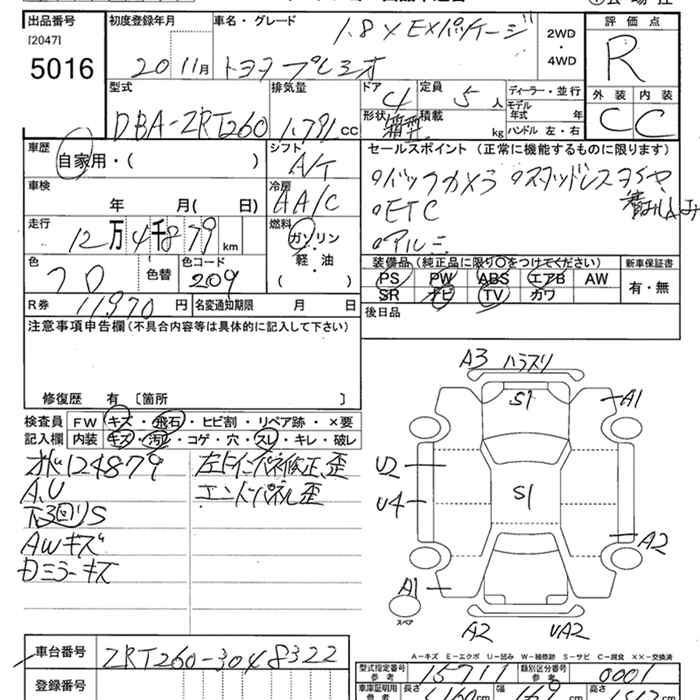 出品番号
[2047]
5016
初度登録年月
20 11月
車名・グレード
1.8X EXパッケージ
トヨタ プレミオ
2WD
・
4WD
評価点
R
外装 内装
C C
型式
DBA-ZRT260
排気量
1.791 CC
ドア
4
定員
5 人
形状
箱型
積載
kg
ディーラー・並行
モデル
年式 年
ハンドル 左・右
車歴
自家用・( )
シフト
A/T
車検
年 月( 日)
冷房
AA/C
走行
12万4千879 km
燃料
ガソリン
・軽・油
( )
色
クロ
色替
色コード
209
R券 11970 円
名変通知期限 月 日
セールスポイント (正常に機能するものに限ります)
○バックカメラ ○スタッドレスタイヤ
○ETC
○アルミ
装備品(純正品に限り○をつけてください)
PS PW ABS エアB AW
SR ナビ TV カワ
新車保証書
有・無
後日品
注意事項申告欄(不具合内容等は具体的に記入して下さい)
修復歴 有 〔箇所 〕
検査員
記入欄
FW キズ・飛石・ヒビ割・リペア跡・×要
内装 キズ・汚れ・コゲ・穴・スレ・キレ・破レ
オド124879
A,U
下回りS
AWキズ
Dミラーキズ
左ドインパネ修正、歪
エンドパネル歪
A3 ハラスリ
S1
A1
U2
U4
S1
A2
A1
スペア
A2
UA2
A-キズ E-エクボ U-凹み W-補修跡 S-サビ C-腐食 ××-交換済
車台番号 ZRT260-3048322
登録番号
型式指定番号
参考
15711
類別区分番号
参考
0001
車庫証明用
参考
長さ
cm
幅
169 cm
高さ
cm